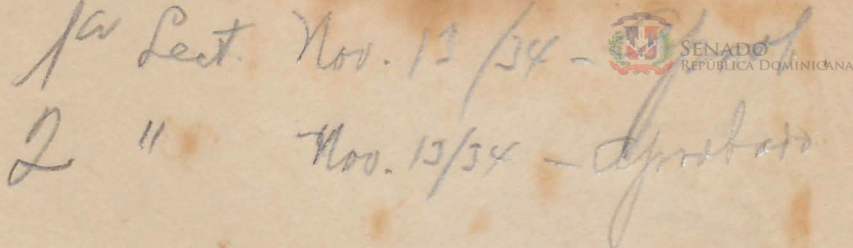 1a Lect. Nov. 13/34 -
SENADO
REPÚBLICA DOMINICANA
2 " Nov. 13/34 - Aprobado